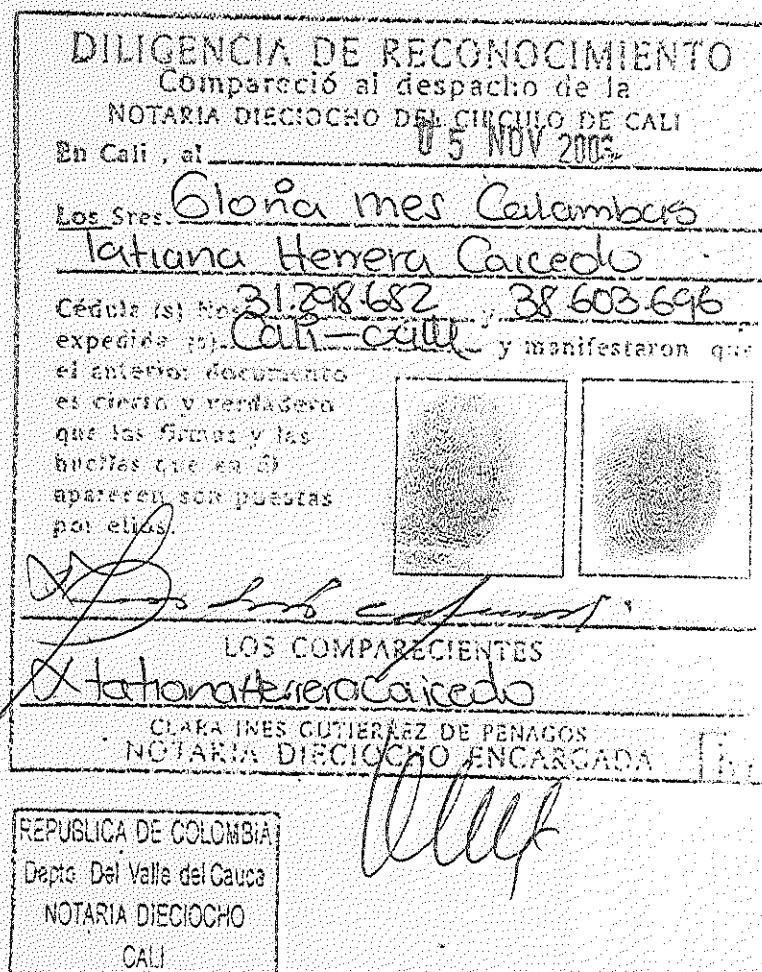 DILIGENCIA DE RECONOCIMIENTO
Compareció al despacho de la
NOTARIA DIECIOCHO DEL CIRCULO DE CALI
En Cali, al 05 NOV
Los Sres. Gloria Ines Calambas
Tatiana Herrera Caicedo
Cédula (s) Nos 31.298.682 y 38.603.696
expedida (s) Cali - Cali y manifestaron que
el anterior documento
es cierto y verdadero
que las firmas y las
huellas que en él
aparecen son puestas
por ellos.
LOS COMPARECIENTES
Tatiana Herrera Caicedo
CLARA INES GUTIERREZ DE PENAGOS
NOTARIA DIECIOCHO ENCARGADA
REPUBLICA DE COLOMBIA
Depto. Del Valle del Cauca
NOTARIA DIECIOCHO
CALI